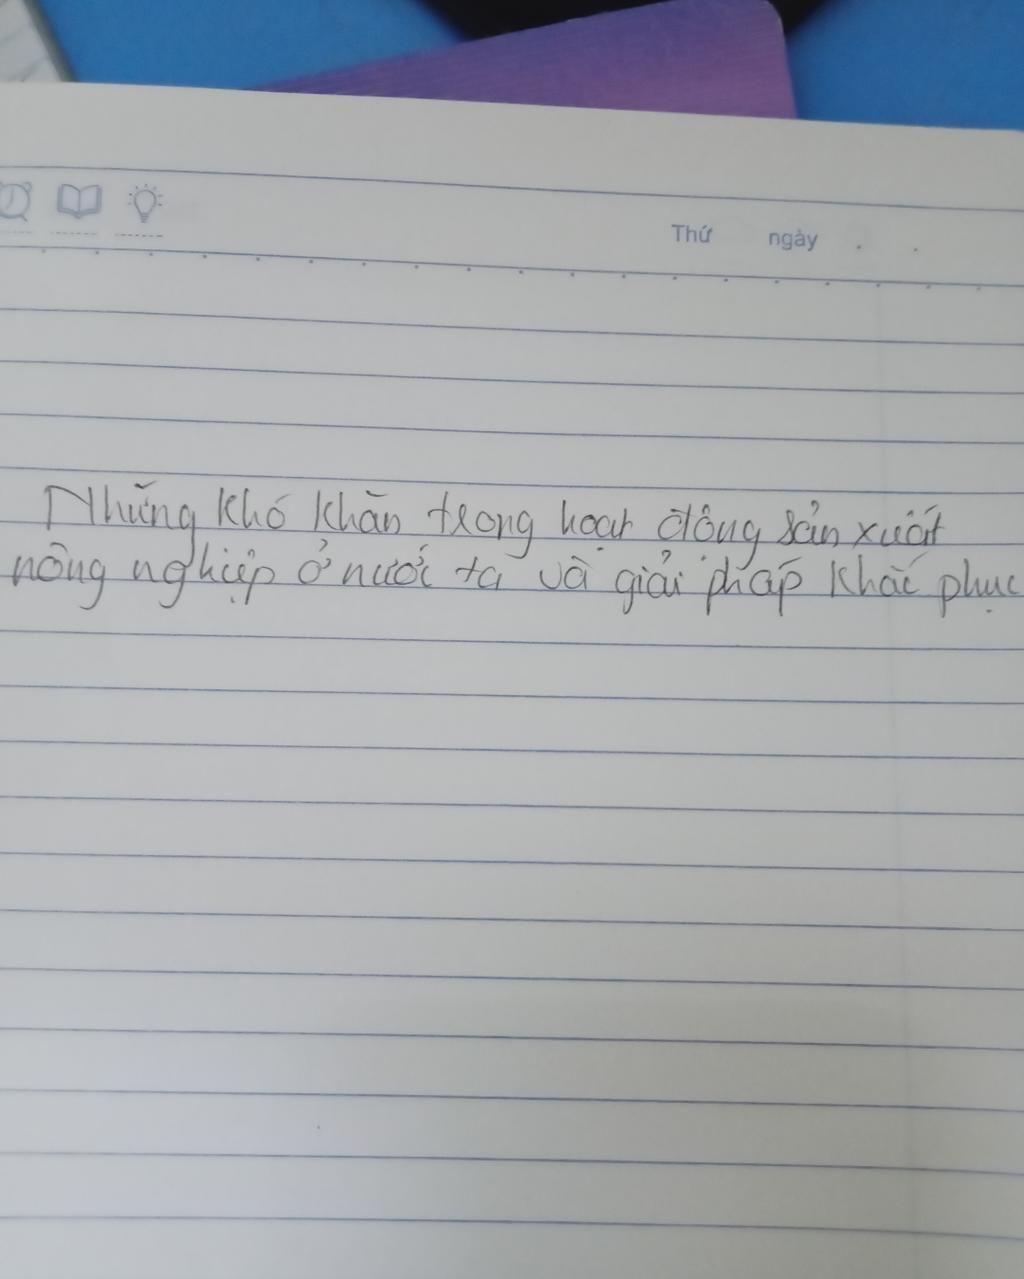 Thứ ngày . .
Những khó khăn trong hoạt động sản xuất
nông nghiệp ở nước ta và giải pháp khắc phục